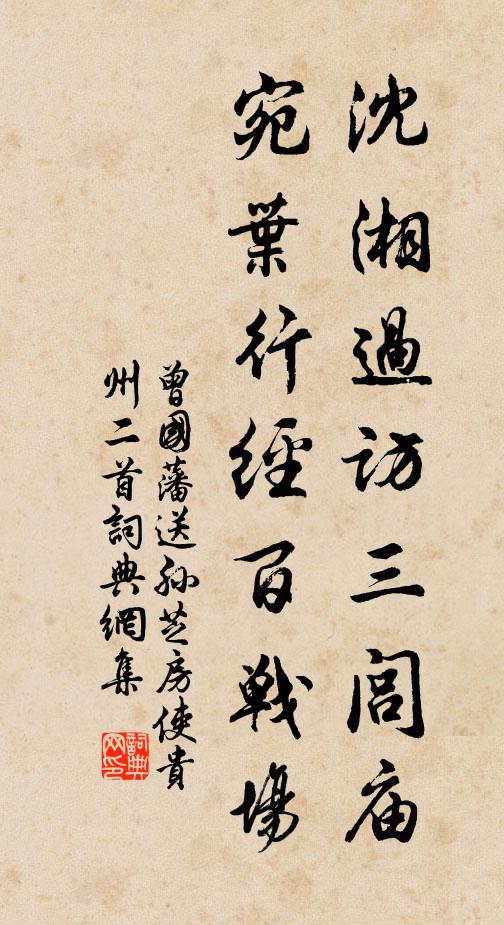 沈湘過訪三閭廟
宛葉行經百戰場
曾國藩送孫芝房使貴
州二首詞典網集
詞典
网印